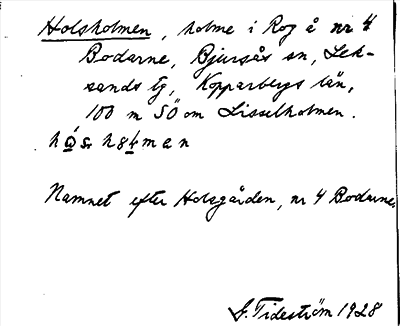 Holsholmen, holme i Rog å nr 4
Bodarne, Bjursås sn, Lek-
sands tg, Kopparbergs län,
100 m SÖ om Lisselholmen.
Namnet efter Holsgården, nr 4 Bodarne.
G. Tideström 1928